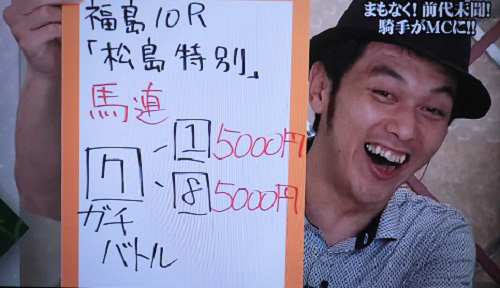 まもなく!前代未聞!
騎手がMCに!!
福島10R
「松島特別」
馬連
7-1 5000円
-8 5000円
ガチ
バトル